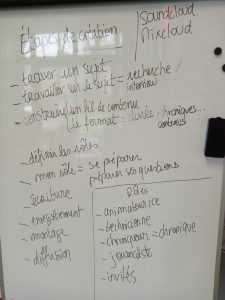 Étapes de création
Soundcloud
Mixcloud
- trouver un sujet
travailler sur le sujet = recherche /
interview
- construire un fil de contenu
le format = durée, chroniques...
contenus
- définir les rôles
- mon rôle = se préparer
préparer ses questions
- écriture
- enregistrement
- montage
- diffusion
Rôles
- animateur.ice
- technicienne
- chroniqueur = chronique
- journaliste
- invités